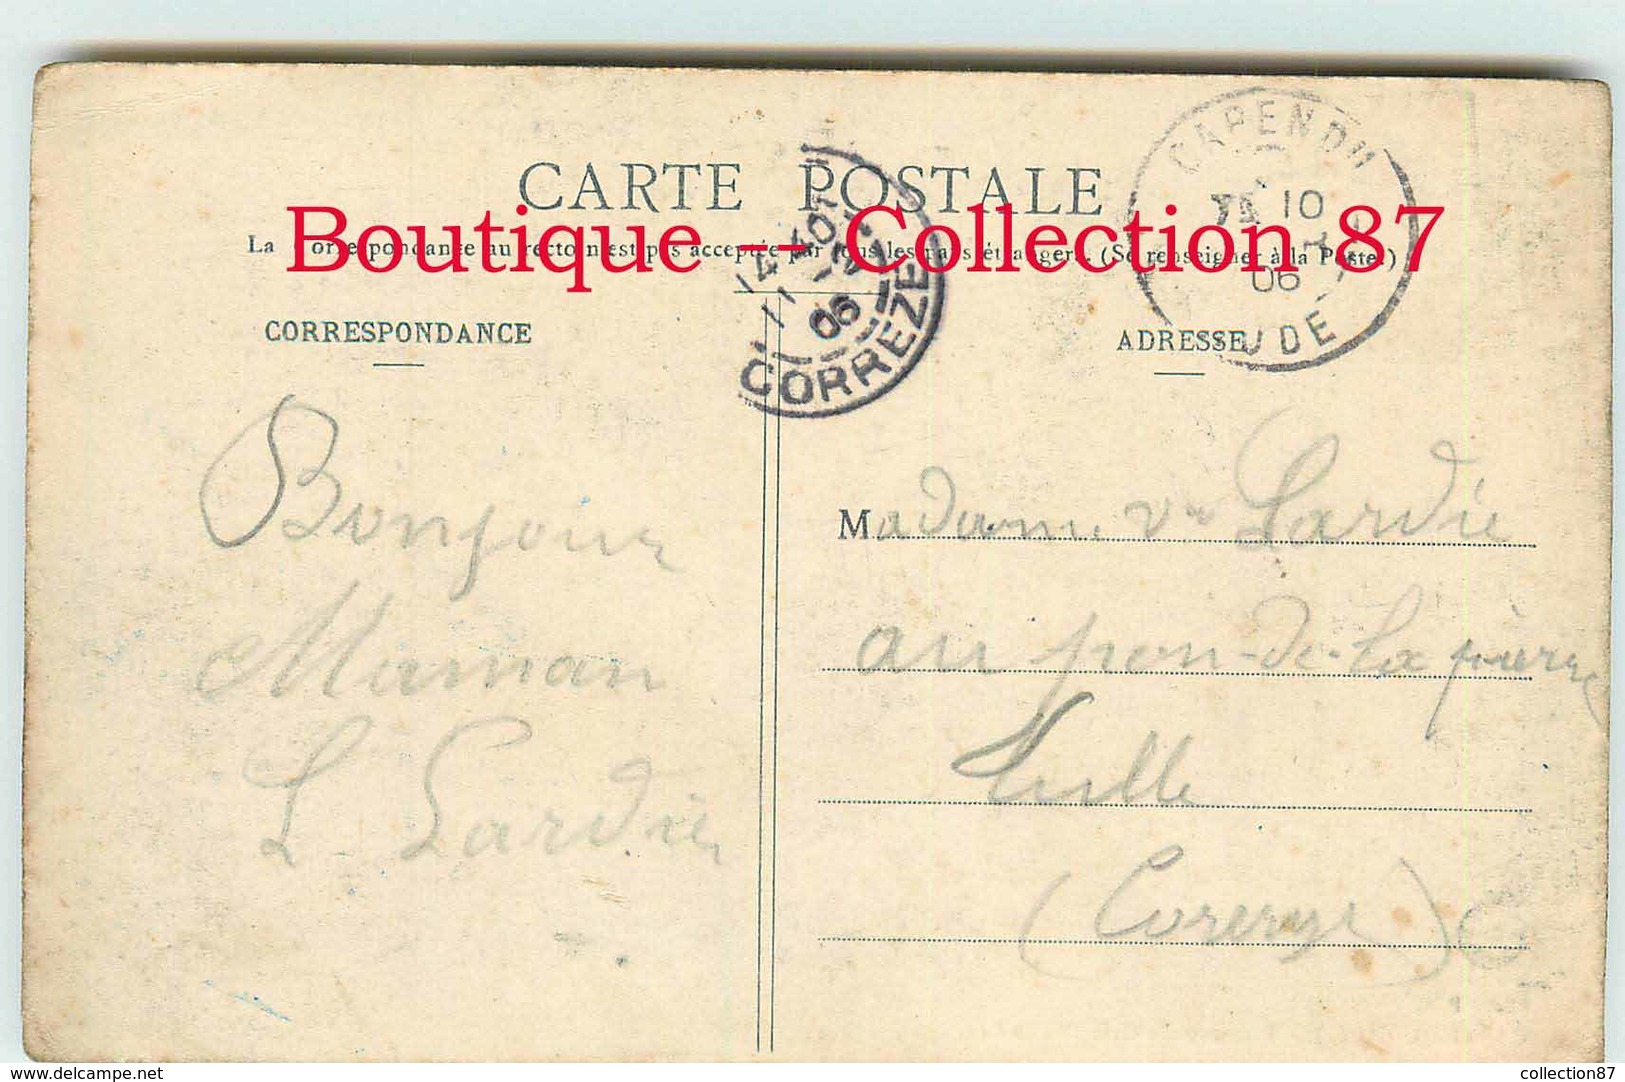 CARTE POSTALE
Boutique -- Collection 87
La Correspondance au recto n'est pas acceptée par tous les pays étrangers. (Se renseigner à la Poste.)
CAPENDU
10
06
AUDE
11
06
CORREZE
CORRESPONDANCE
ADRESSE
Bonjour
Maman
L. Lardie
Madame Vve Lardie
au pon-de-la pierre
Tulle
delcampe.net
collection87